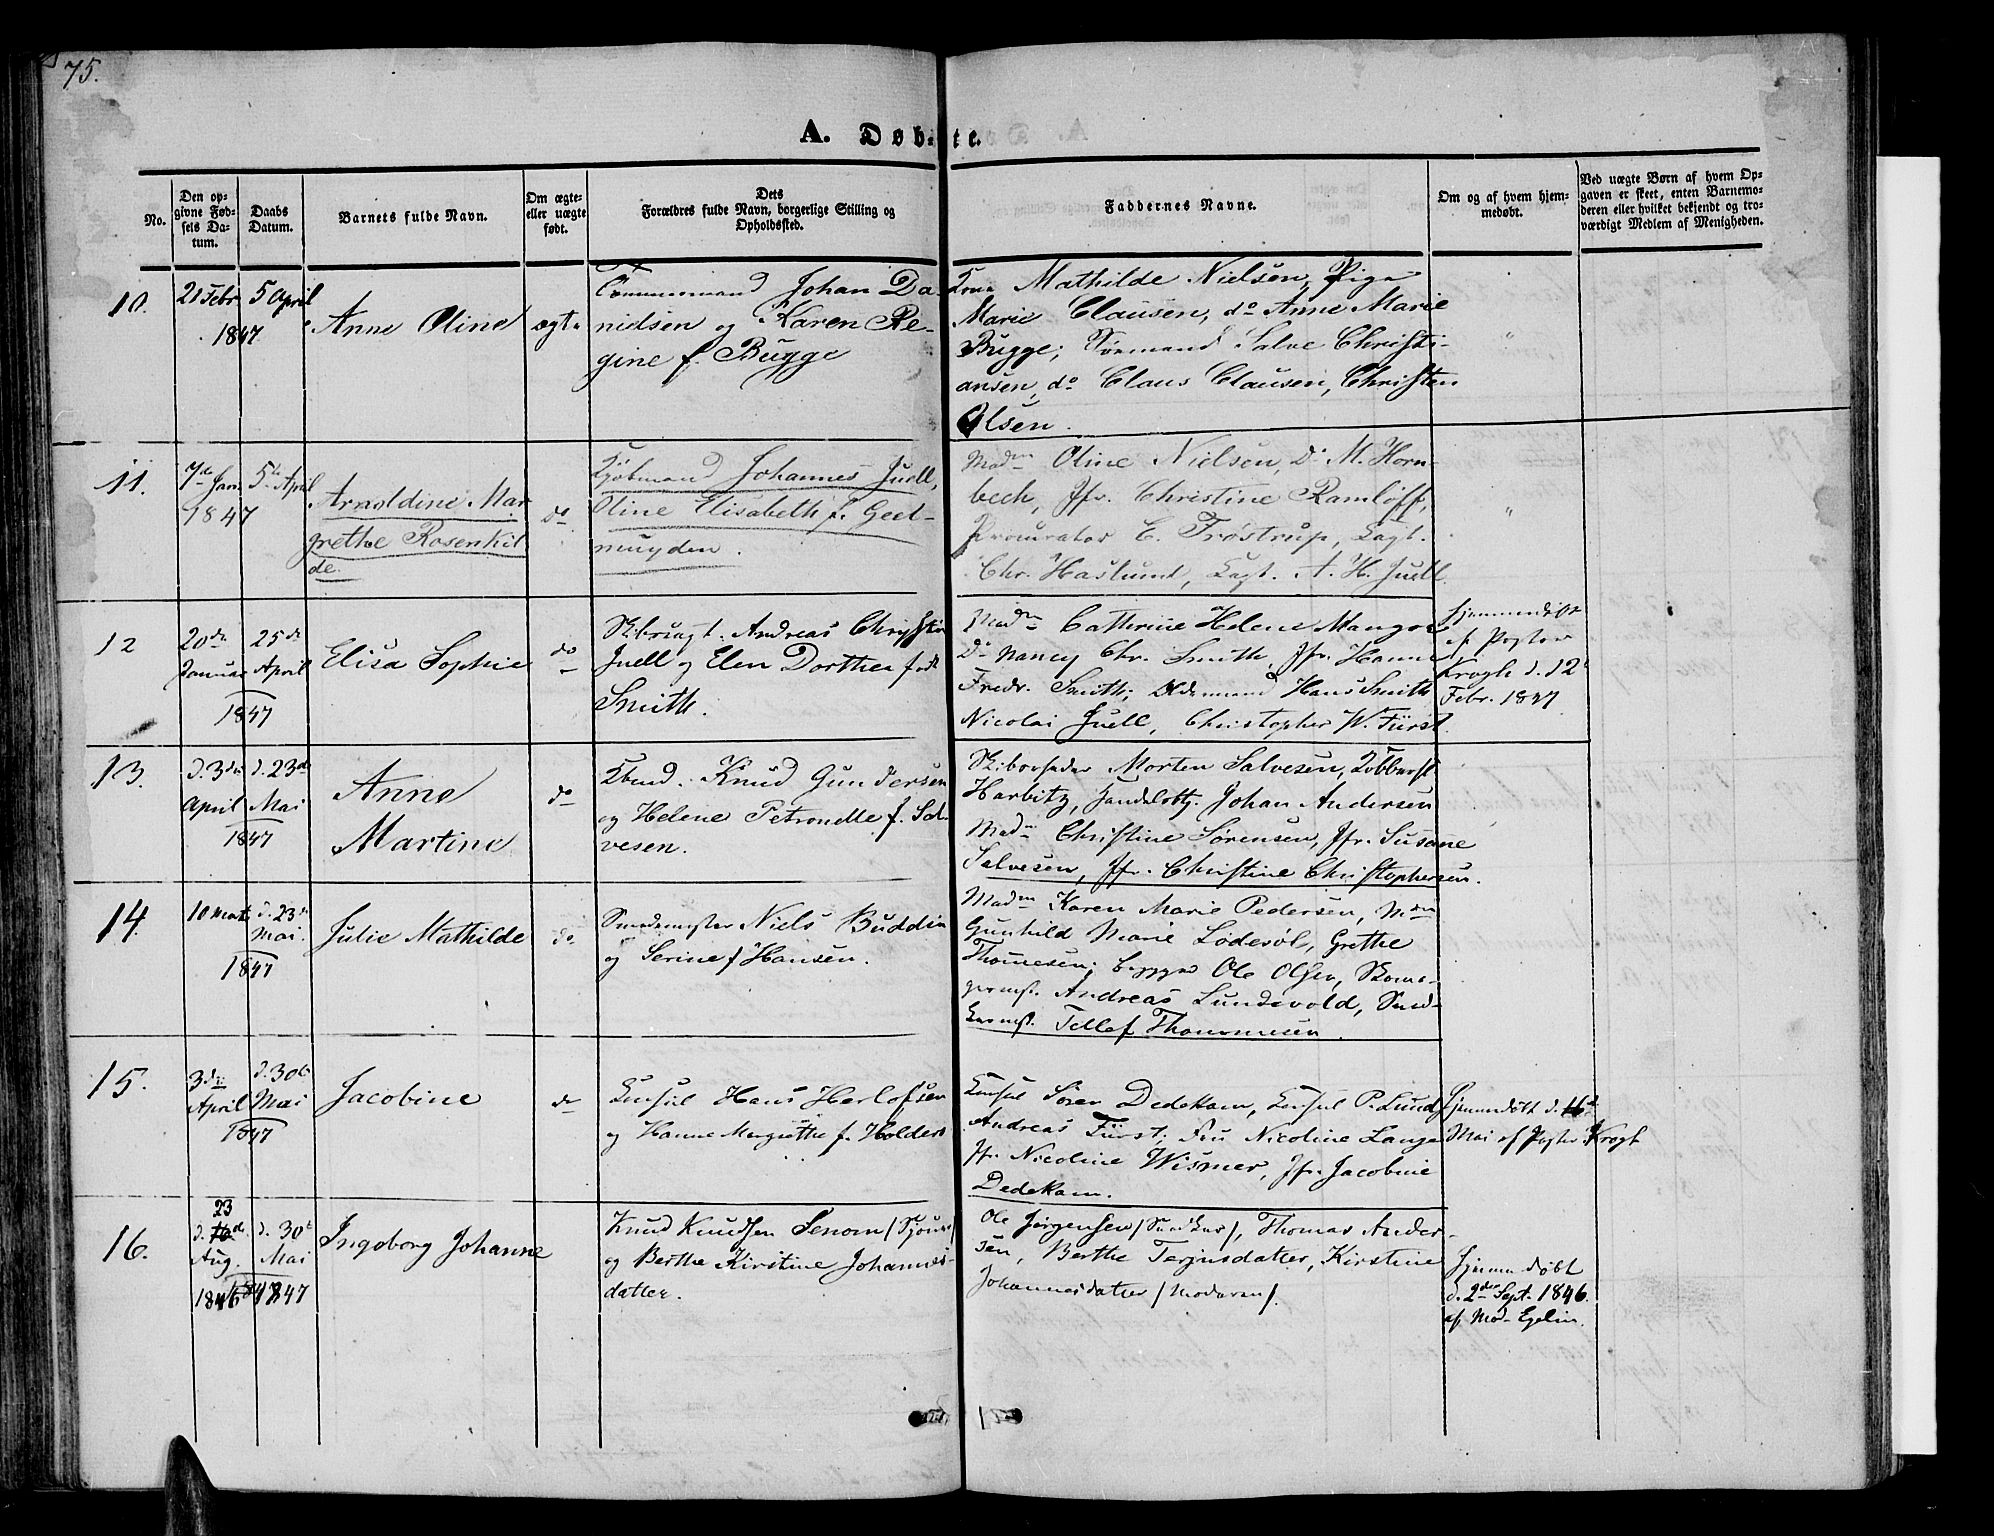 75.
A. Døbte.
No.
Den op-
givne Fød-
sels Da-
tum.
Daabs
Datum.
Barnets fulde Navn.
Om ægte-
eller uægte
født.
Dets
Forældres fulde Navn, borgerlige Stilling og
Opholdssted.
Faddernes Navne.
Om og af hvem hjem-
medøbt.
Ved uægte Børn af hvem Op-
gaven er skeet, enten Barnemo-
deren eller hvilket bekjendt og tro-
værdigt Medlem af Menigheden.
10.
21 Febr.
1847
5 April
Anne Oline
ægte
Tømmermand Johan Da-
nielsen og Karen Re-
gine f. Bugge
Kone Mathilde Nielsen, Pige
Marie Clausen, do Anne Marie
Bugge; Sømand Salve Christi-
ansen, do Claus Clausen, Christen
Olsen.
"
11.
7de Jan
1847
5te April
Arnoldine Mar-
grethe Rosenkil-
de.
do
Kjøbmand Johannes Juell,
Oline Elisabeth f. Geel-
muyden.
Madm Oline Nielsen, Do M. Horn-
bech, Jfr. Christine Ramløff,
Procurator C. Frøstrup, Capt.
Chr. Haslund, Capt. A. H. Juell.
"
12
20de
Januar
25de
April
1847
Elisa Sophie
do
Skibscapt. Andreas Christian
Juell og Elen Dorthea født
Smith.
Madm Cathrine Helene Mangor
Do Nancy Chr. Smith, Jfr. Hanne
Fredr. Smith; Oldermand Hans Smith
Nicolai Juell, Christopher W. Fürst.
Hjemmedøbt
af Pastor
Krogh d. 12te
Febr. 1847.
13.
d. 3die
April
d. 23de
Mai
1847
Anne
Martine
do
Kbmd. Knud Gundersen
og Helene Petronelle f. Sal-
vesen.
Skibsreder Morten Salvesen,
Harbitz, Handelsbtj. Johan Andersen
Madm Christine Sørensen, Jfr. Susanne
Salvesen, Jfr. Christine Christophersen.
14.
10 Marts
d. 23de
Mai.
1847
Julie Mathilde
do
Smedemester Niels Budde
og Serine f Hansen.
Madm Karen Marie Pedersen, Mdm
Gunhild Marie Lødesøl, Grethe
Thomesen; Ole Olsen, Skoma-
germst. Andreas Lundevold, Sned-
kermst. Tellef Thommesen.
15.
3die
April
d. 30te
Mai
1847
Jacobine
do
Consul Hans Herlofsen
og Hanne Margrethe f. Holdere
Consul Søren Dedekam, Consul P. Lund,
Andreas Fürst; Fru Nicoline Lange
Jfr. Nicoline Wismer, Jfr. Jacobine
Dedekam.
Hjemmedøbt d. 16de
Mai af Pastor Krogh
16.
23
d. 16de
Aug.
1846
d. 30te
Mai
1847
Ingeborg Johanne
Knud Knudsen Senom
og Berthe Kirstine Johannes-
datter.
Ole Jørgensen / Snedker /, Thomas Ander-
sen, Berthe Terjusdatter, Kirstine
Johannesdatter / Moderen /.
Hjemmedøbt
d. 2den Sept. 1846
af Mad. Egelin.